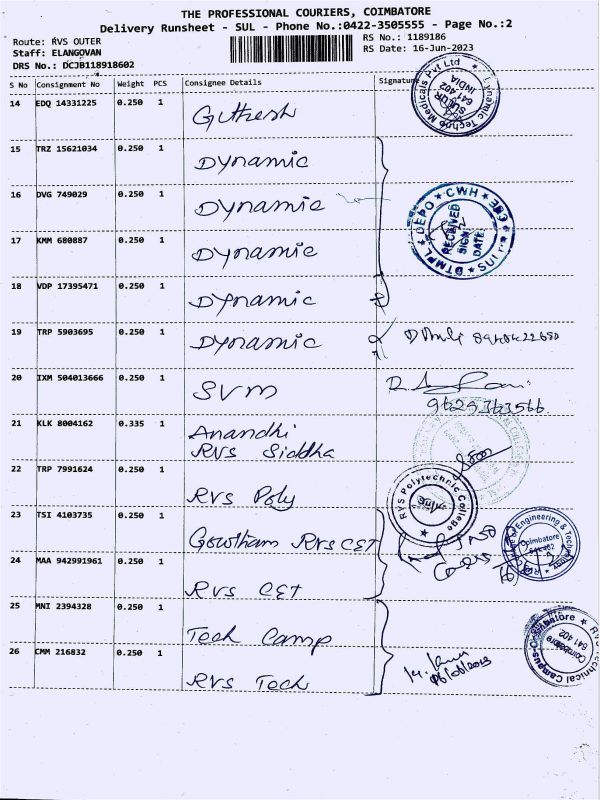 THE PROFESSIONAL COURIERS, COIMBATORE
Delivery Runsheet - SUL - Phone No.:0422-3505555 - Page No.:2
Route: RVS OUTER
RS No.: 1189186
Staff: ELANGOVAN
RS Date: 16-Jun-2023
DRS No.: DCJB118918602
S No Consignment No Weight PCS Consignee Details Signature
14 EDQ 14331225 0.250 1 Guthesh
Dynamic Techno Medicals Pvt Ltd
SULUR
641 402
INDIA
15 TRZ 15621034 0.250 1 Dynamic
16 DVG 749029 0.250 1 Dynamic
DTMPL DEPO CWH
RECEIVED
SIGN
DATE
17 KMM 680887 0.250 1 Dynamic
18 VDP 17395471 0.250 1 Dynamic
19 TRP 5903695 0.250 1 Dynamic
20 IXM 504013666 0.250 1 SVM
9629363566
21 KLK 8004162 0.335 1 Anandhi
RVS Siddha
22 TRP 7991624 0.250 1 RVS Poly
RVS Polytechnic College
Sulur
23 TSI 4103735 0.250 1 Gowtham RVS CET
of Engineering & Technology
Coimbatore
641 402
24 MAA 942991961 0.250 1 RVS CET
25 MNI 2394328 0.250 1 Tech Camp
Technical Campus-Coimbatore
Coimbatore
641 402
26 CMM 216832 0.250 1 RVS Tech